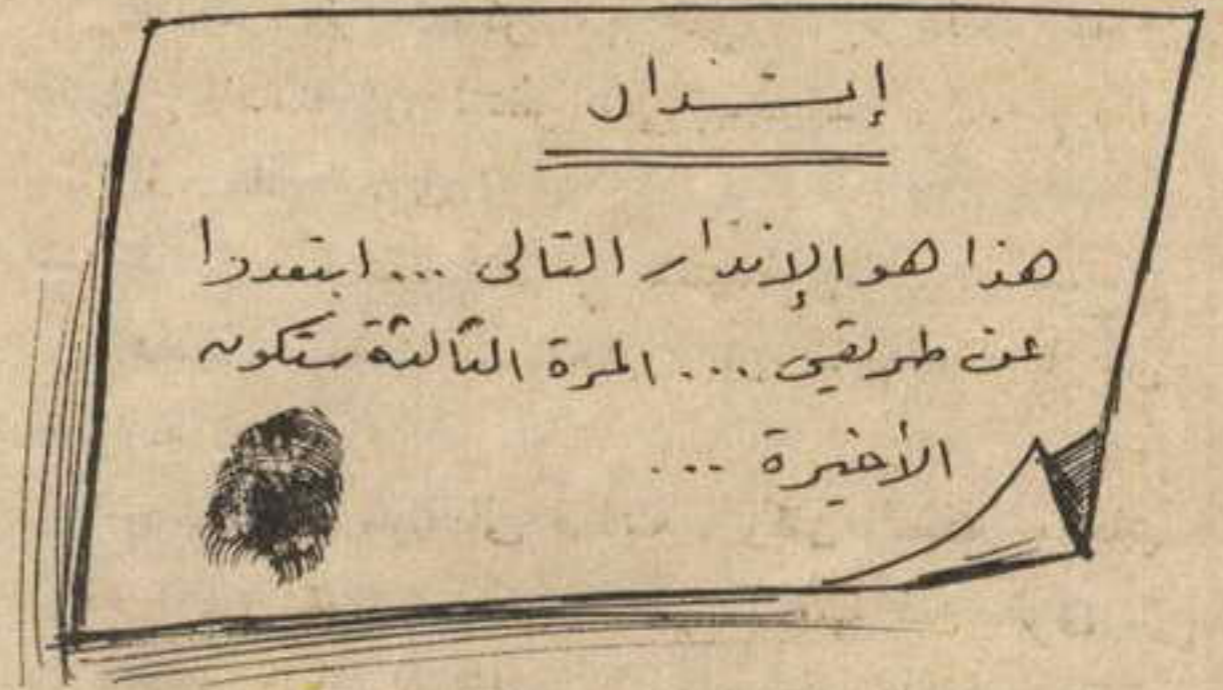 إنــذار
هذا هو الإنذار التالى ... ابتعدوا
عن طريقي ... المرة الثالثة ستكون
الأخيرة ...